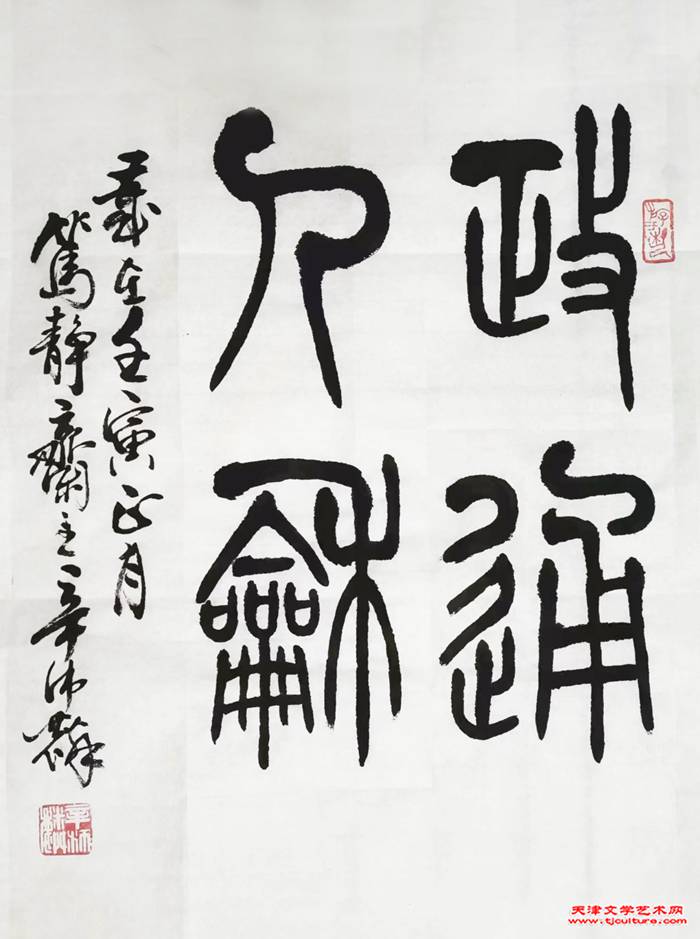 政通
人龢
歲在壬寅正月
篤靜齋主辛沛
天津文学艺术网
www.tjculture.com